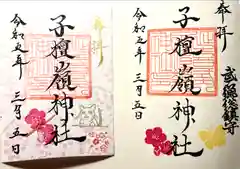 奉拝
子檀嶺神社
令和五年
三月五日
奉拝
武石総鎮守
子檀嶺神社
令和五年
三月五日